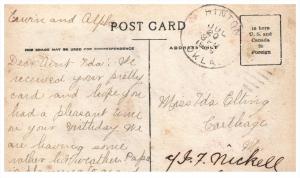 Edwin and Alph
POST CARD
HINTON
OKLA.
1c here
U. S. and
Canada
2c Foreign
THIS SPACE MAY BE USED FOR CORRESPONDENCE
ADDRESS ONLY
Dear Aunt Ida: We
received your pretty
card and hope you
had a pleasant time
on your birthday. We
are having some
rather hot weather. Papa
Miss Ida Elting
Carthage
J. F. Nickell